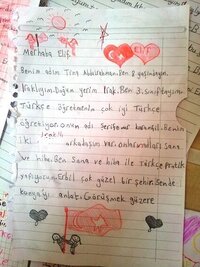 ELİF
Merhaba Elif
Benim adım Tina Abdulrahman. Ben 8 yaşındayım.
Iraklıyım. Doğum yerim Irak. Ben 3. sınıftayım.
Türkçe öğretmenim çok iyi Türkçe
öğretiyor. onun adı Benim
iki arkadaşım var. onların adları Sana
ve hiba. Ben Sana ve hiba ile Türkçe pratik
yapıyorum. Erbil çok güzel bir şehir. Sende
anlat. Görüşmek üzere